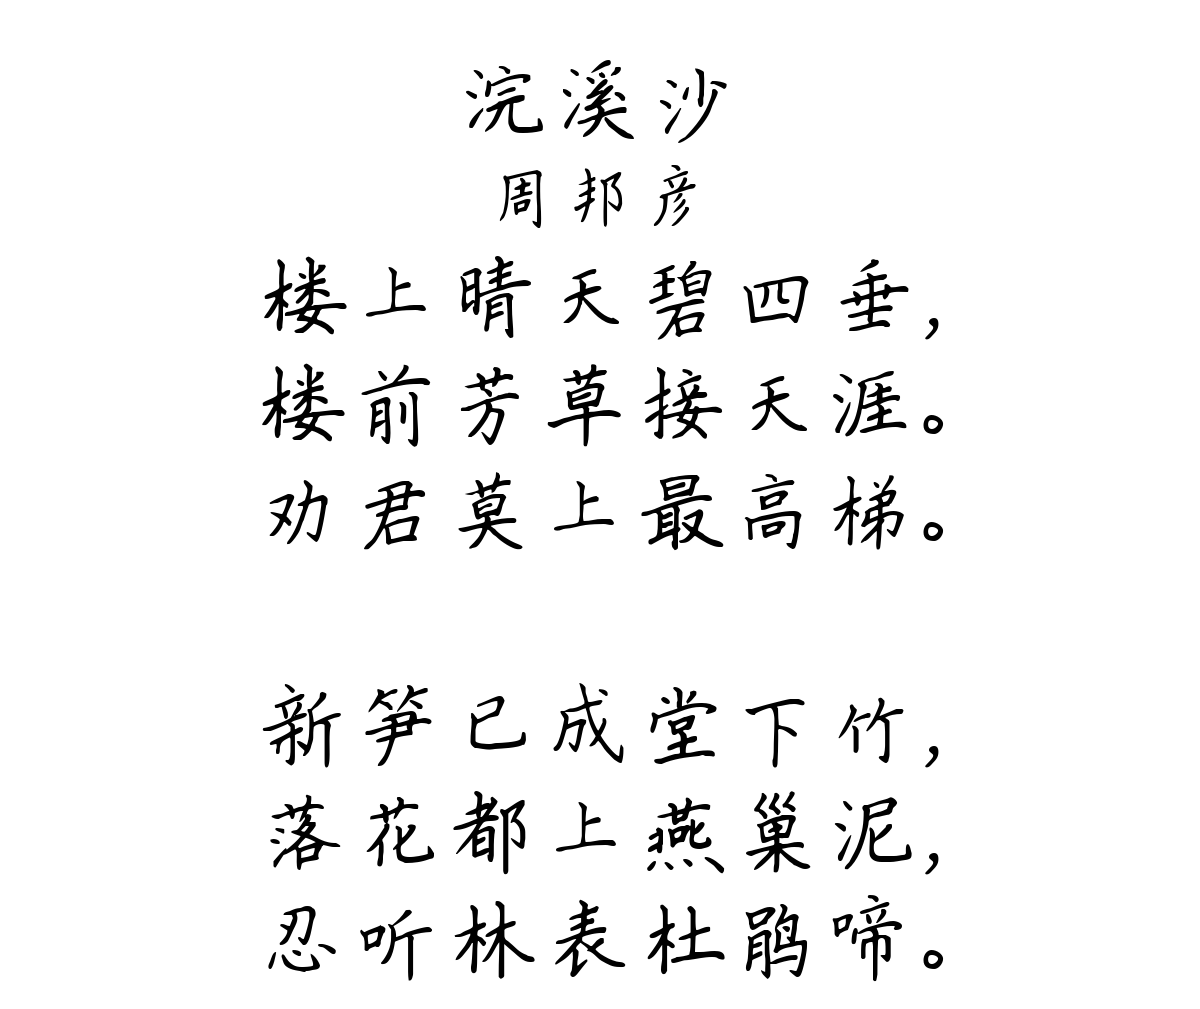 浣溪沙
周邦彦
楼上晴天碧四垂，
楼前芳草接天涯。
劝君莫上最高梯。
新笋已成堂下竹，
落花都上燕巢泥，
忍听林表杜鹃啼。